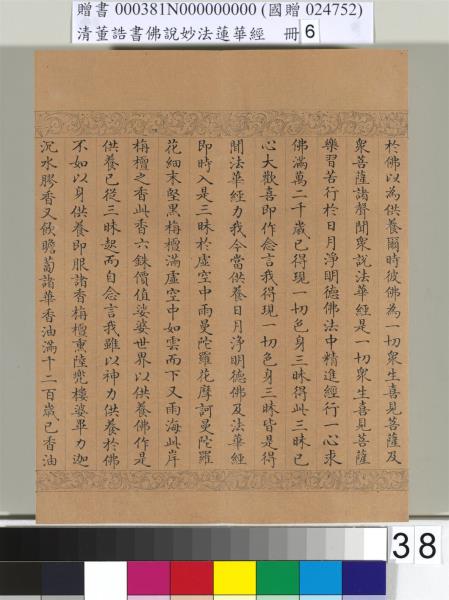 贈書 000381N000000000 (國贈 024752)
清董誥書佛說妙法蓮華經 冊 6
於佛以為供養爾時彼佛為一切眾生喜見菩薩及
眾菩薩諸聲聞眾說法華經是一切眾生喜見菩薩
樂習苦行於日月淨明德佛法中精進經行一心求
佛滿萬二千歲已得現一切色身三昧得此三昧已
心大歡喜即作念言我得現一切色身三昧皆是得
聞法華經力我今當供養日月淨明德佛及法華經
即時入是三昧於虛空中雨曼陀羅花摩訶曼陀羅
花細末堅黑栴檀滿虛空中如雲而下又雨海此岸
栴檀之香此香六銖價值娑婆世界以供養佛作是
供養已從三昧起而自念言我雖以神力供養於佛
不如以身供養即服諸香栴檀熏陸兜樓婆畢力迦
沉水膠香又飲瞻蔔諸華香油滿千二百歲已香油
38